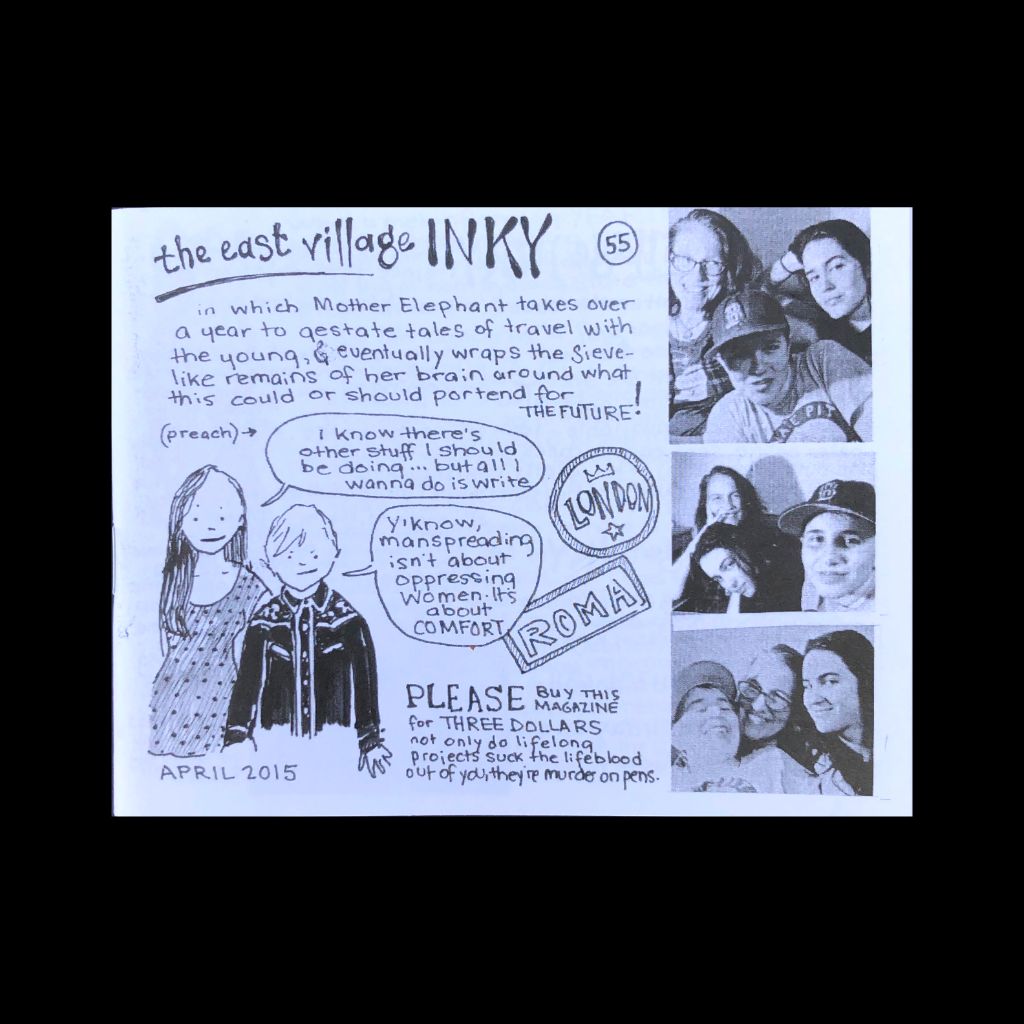 the east village INKY 55
in which Mother Elephant takes over
a year to gestate tales of travel with
the young, & eventually wraps the sieve-
like remains of her brain around what
this could or should portend for
THE FUTURE!
(preach)→
I know there's
other stuff I should
be doing... but all I
wanna do is write
y'know,
manspreading
isn't about
oppressing
women. It's
about
COMFORT
LONDON
ROMA
PLEASE BUY THIS
MAGAZINE
for THREE DOLLARS
not only do lifelong
projects suck the lifeblood
out of you, they're murder on pens.
APRIL 2015
B
PIT
B